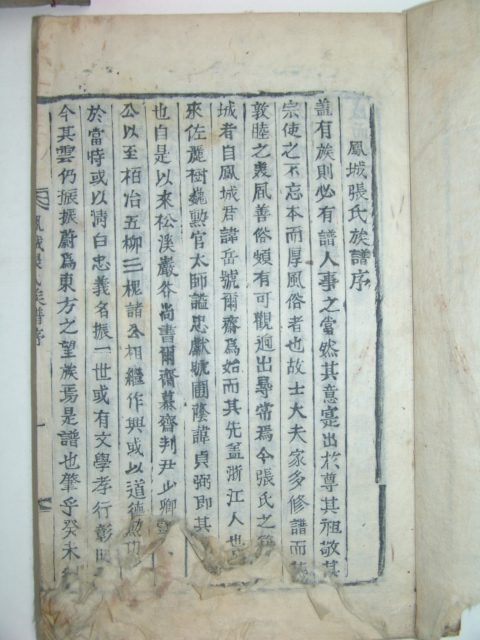 鳳城張氏族譜序
盖有族則必有譜人事之當然其意寔出於尊其祖敬其
宗使之不忘本而厚風俗者也故士大夫家多修譜而
敦睦之義風善俗頗有可觀逈出尋常焉今張氏之
城者自鳳城君諱岳號爾齋爲始而其先盖浙江人也
來佐麗樹巍勲官太師謚忠獻號圃蔭諱貞弼即其
也自是以來松溪巖谷尚書爾齋慕齋判尹少卿
公以至栢冶五柳三槐諸公相繼作興或以道德勲功
於當時或以淸白忠義名振一世或有文學孝行彰
今其雲仍振振蔚爲東方之望族焉是譜也肇乎癸未
鳳城張氏族譜序
一